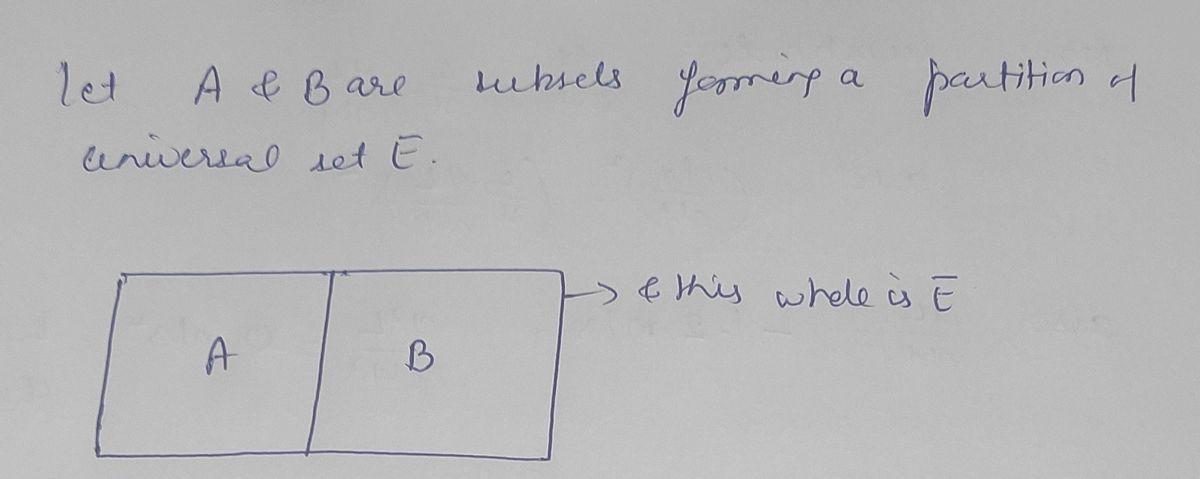 let A & B are subsets forming a partition of
universal set E.
→ & this whole is E
A B